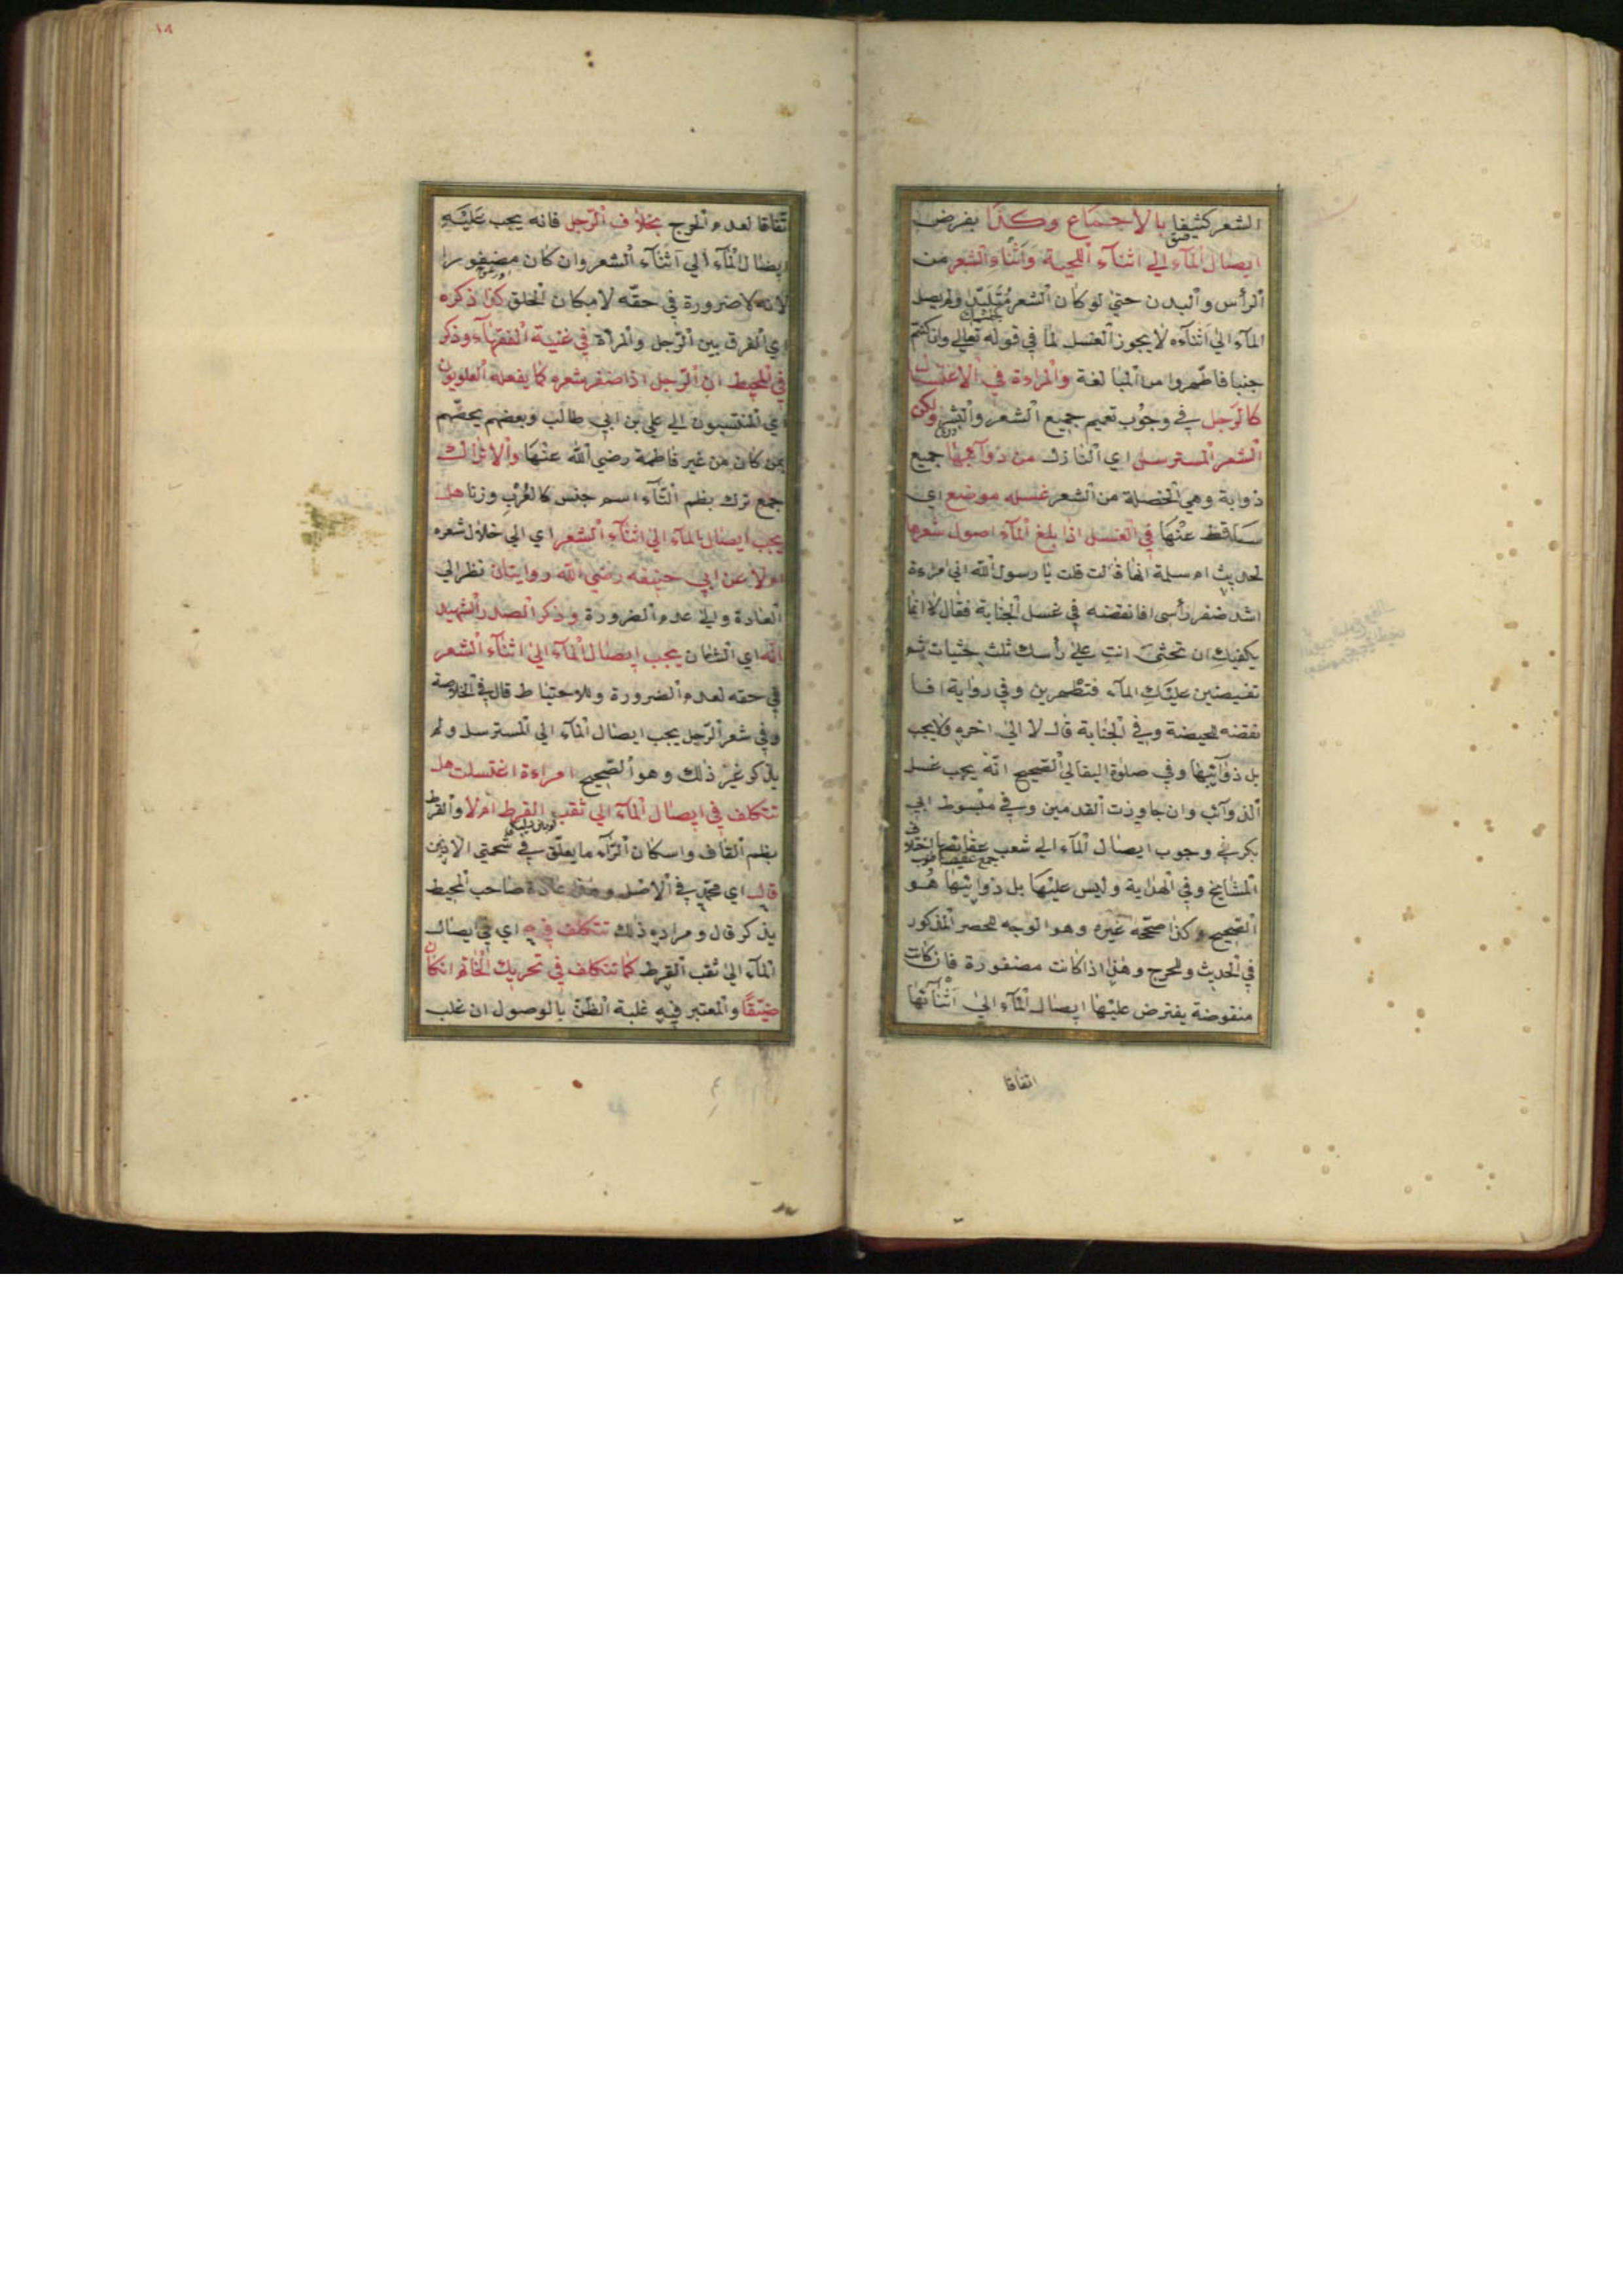 الشعر كثيفا بالاجماع وكذا يفرض
ايصال المآء الي اثنآء اللحية واثنآء الشعر من
الرأس والبدن حتي لو كان الشعر متلبّدا ولم يصل
المآء الي اثنآءه لا يجوز الغسل لما في قوله تعالي وان كنتم
جنبا فاطّهروا من المبالغة والمراءة في الاغتسال
كالرّجل في وجوب تعميم جميع الشعر والبشر ولكن
الشعر المسترسل اي النازل من ذوآئبها جميع
ذوابة وهي الخصلة من الشعر غسله موضع اي
ساقط عنها في الغسل اذا بلغ المآء اصول شعرها
لحديث ام سلمة انها قالت قلت يا رسول الله اني امرءة
اشد ضفر رأسى افانقضه في غسل الجنابة فقال لا انما
يكفيك ان تحثى انت علي رأسك ثلث حثيات ثم
تفيضين عليك المآء فتطهرين وفي رواية افا
نقضه للحيضة وفي الجنابة قال لا الي اخره ولا يجب
بل ذوآئبها وفي صلوة البقالي الصحيح انّه يجب غسل
الذوآئب وان جاوزت القدمين وفي مبسوط ابي
بكر في وجوب ايصال المآء الي شعب عقايصها اختلاف
المشايخ وفي الهداية وليس عليها بل ذوايبها هو
الصحيح وكذا صحّحه غيره وهو الوجه للحصر المذكور
في الحديث وللحرج وهذا اذا كانت مضفورة فان كانت
منقوضة يفترض عليها ايصال المآء الي اثنآئها
اتفاقا
١٨
تّفاقا لعدم الحرج بخلاف الرّجل فانه يجب عليه
ايصال المآء الي اثنآء الشعر وان كان مضفورا
لانه لا ضرورة في حقّه لامكان الحلق كذا ذكره
اي الفرق بين الرّجل والمراة في غنية الفقهآء وذكر
في المحيط ان الرّجل اذا ضفر شعره كما يفعله العلويون
اي المنتسبون الي علي بن ابي طالب وبعضهم يخصّهم
بمن كان من غير فاطمة رضي الله عنها والاتراك
جمع ترك بظم التّآء اسم جنس كالعُرْبِ وزنا هل
يجب ايصال المآء الي اثنآء الشعر اي الي خلال شعره
ام لا عن ابي حنيفه رضي الله روايتان نظرا الي
العادة والي عدم الضرورة وذكر الصدر الشهيد
انّه اي الشان يجب ايصال المآء الي اثنآء الشعر
في حقه لعدم الضرورة وللاحتياط قال في الخلاصة
وفي شعر الرّجل يجب ايصال المآء الي المسترسل ولم
يذكر غير ذلك وهو الصّحيح امراءة اغتسلت هل
تتكلف في ايصال المآء الي ثقب القرط ام لا والقرط
بظم القاف واسكان الرّآء ما يعلّق في شحمتي الاذين
قال اي محمّد في الاصل وهذا عادة صاحب المحيط
يذكر قال ومراده ذلك تتكلف فيه اي في ايصال
المآء الي ثقب القرط كما تتكلف في تحريك الخاتم ان كان
ضيّقًا والمعتبر فيه غلبة الظنّ بالوصول ان غلب